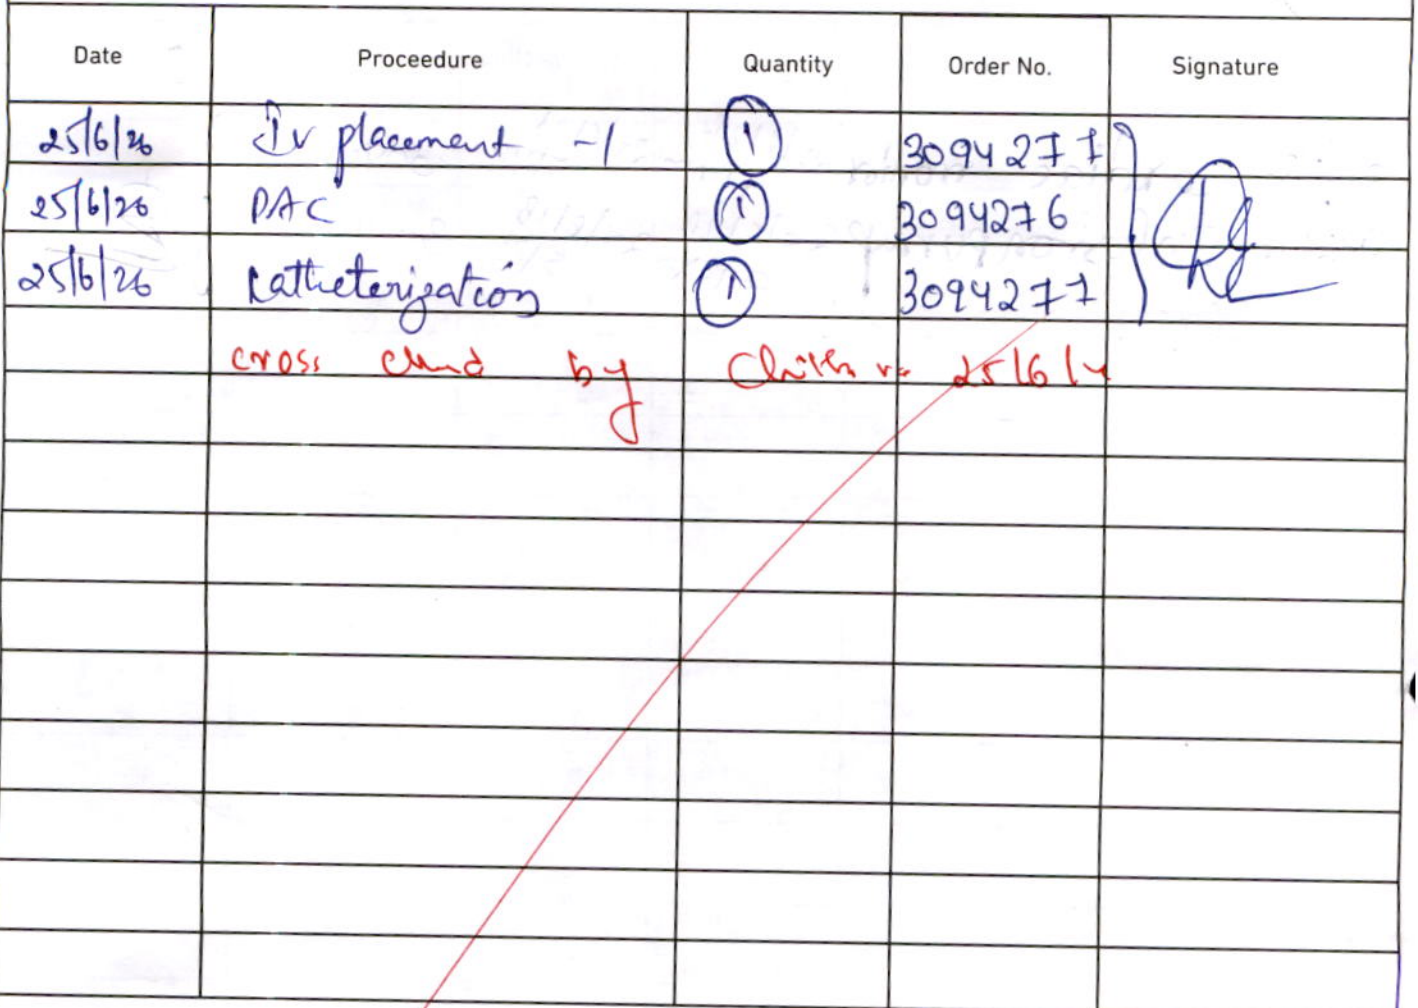 Date Proceedure Quantity Order No. Signature
25/6/26 Iv placement -1 1 3094277
25/6/26 PAC 1 3094276
25/6/26 Catheterization 1 3094277
cross by 25/6/